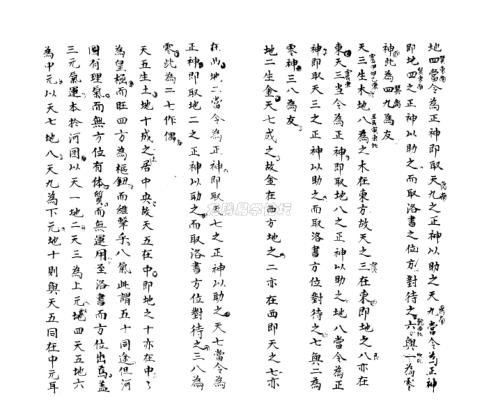 地四當令為正神即取天九之正神以助之天九當令為正神
即地四之正神以助之而取洛書之位方對待之六與一為零
神此為四九為友
天三生木地八為之木在東方故天之三在東即地之八亦在
東天三當令為正神即取地八之正神以助之地八當令為正
神即取天三之正神以助之而取洛書方位對待之七與二為
零神三八為友
地二生金天七成之故金在西方地之二亦在西即天之七亦
在西地二當令為正神即取天七之正神以助之天七當令為
正神即取地二之正神以助之而取洛書方位對待之三八為
零此為二七作偶
天五生土地十成之居中央故天五在中即地之十亦在中
為皇極而旺四方為樞鈕而維擊乎八氣此謂五十同途但河
圖有理氣而無方位有体質而無運用至洛書而方位出焉蓋
三元氣運本於河图以天一地二天三為上元地四天五地六
為中元以天七地八天九為下元地十則與天五同在中元耳